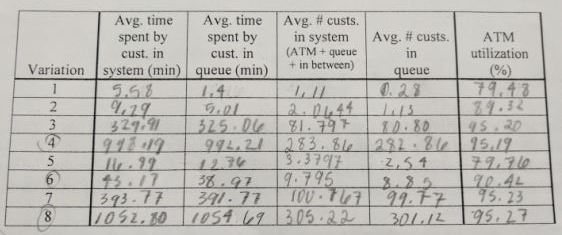 Variation | Avg. time spent by cust. in system (min) | Avg. time spent by cust. in queue (min) | Avg. # custs. in system (ATM + queue + in between) | Avg. # custs. in queue | ATM utilization (%)
1 | 5.58 | 1.4 | 1.11 | 0.28 | 79.48
2 | 9.29 | 5.01 | 2.0644 | 1.13 | 89.32
3 | 329.91 | 325.06 | 81.797 | 80.80 | 95.20
4 | 998.19 | 992.21 | 283.86 | 282.86 | 95.19
5 | 16.99 | 12.76 | 3.3797 | 2,54 | 79.76
6 | 43.17 | 38.97 | 9.795 | 8.85 | 90.42
7 | 393.77 | 391.77 | 100.767 | 99.77 | 95.23
8 | 1052.80 | 1054.69 | 305.22 | 301.12 | 95.27